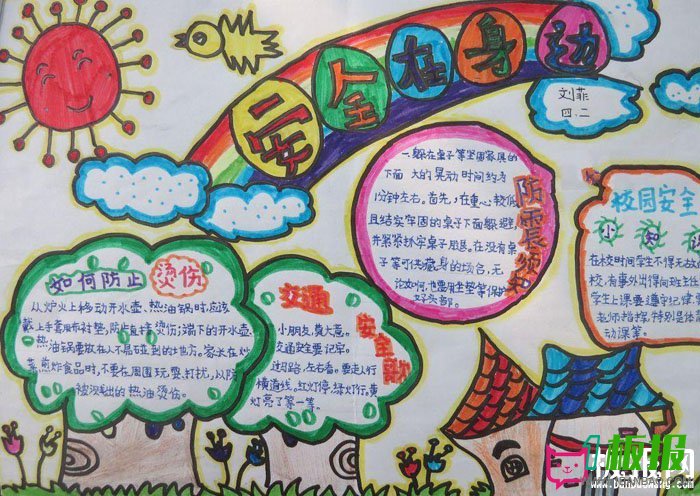 安全在身边
刘菲
四.二
防震须知
一.躲在桌子等坚固家具的
下面 大的晃动时间约为
1分钟左右。首先,在重心较低
且结实牢固的桌子下面躲避,
并紧紧抓牢桌子腿。在没有桌
子等可供藏身的场合,无
论如何,也要用坐垫等保护
好头部。
校园安全
小知
在校时间学生不得无故
校,有事外出得向班主任
学生上课要遵守纪律
老师指挥,特别是体育
动课等。
如何防止烫伤
从炉火上移动开水壶、热油锅时,应该
戴上手套用布衬垫,防止直接烫伤;端下的开水壶、
热油锅要放在人不易碰到的地方。家长在炒
菜、煎炸食品时,不要在周围玩耍、打扰,以防
被溅出的热油烫伤。
交通安全歌
小朋友,莫大意。
交通安全要记牢。
过马路,左右看。要走人行
横道线。红灯停,绿灯行。黄
灯亮了等一等。
板报网